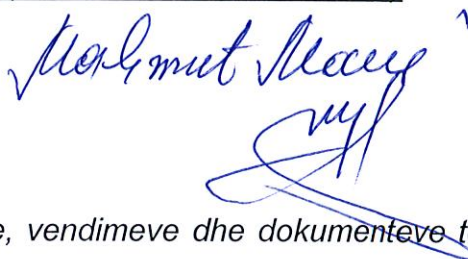 Mahmut
e, vendimeve dhe dokumenteve t